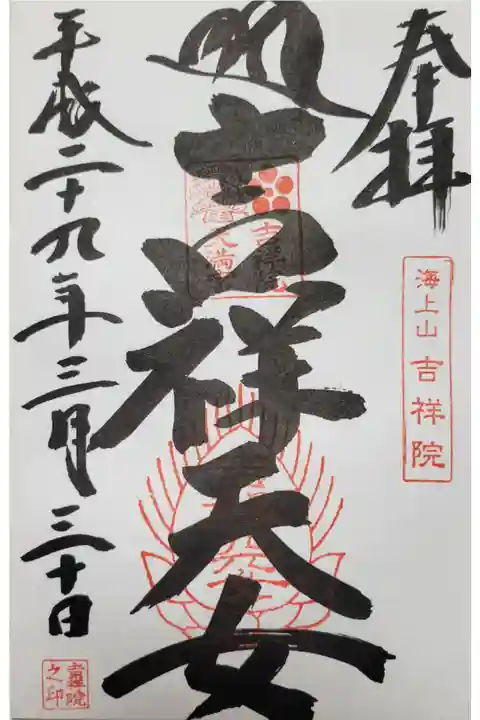 奉拝
海上山 吉祥院
吉祥天女
平成二十九年三月三十日
吉祥院之印